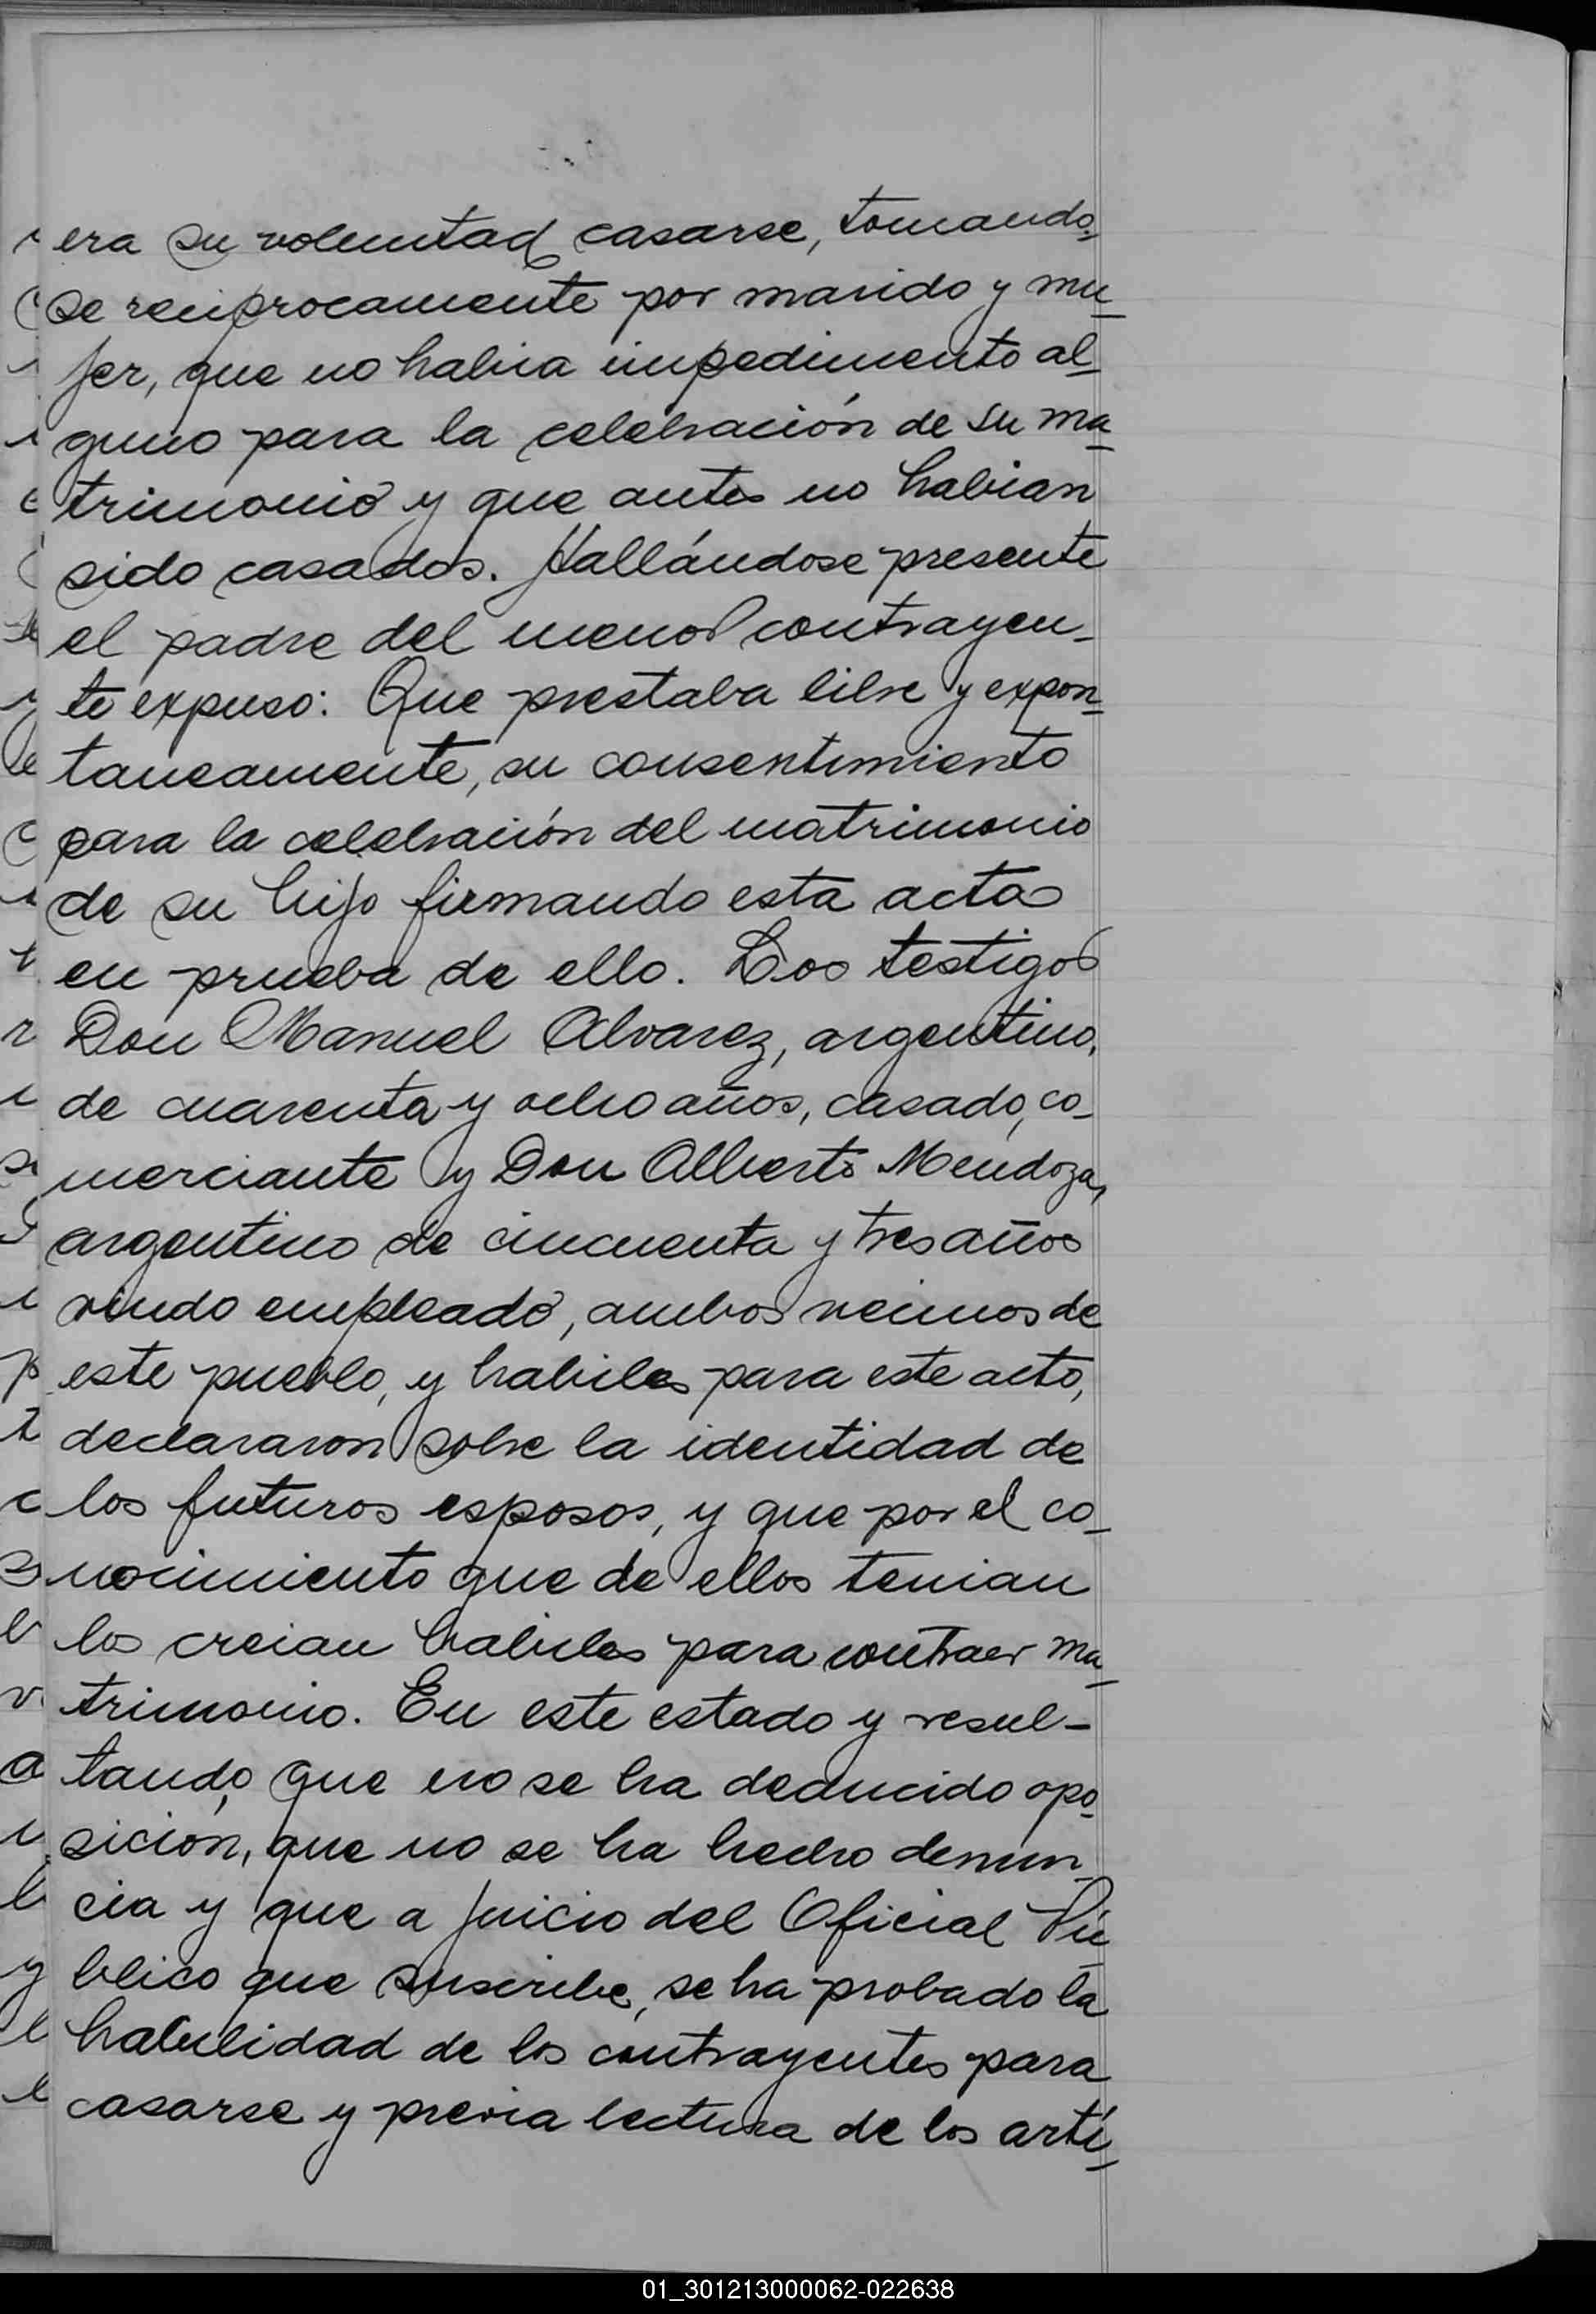 era su voluntad casarse, tomando-
se reciprocamente por marido y mu-
jer, que no habia impedimento al-
guno para la celebración de su ma-
trimonio y que antes no habian
sido casados. Hallándose presente
el padre del menor contrayen-
te expuso: Que prestaba libre y expon-
taneamente, su consentimiento
para la celebración del matrimonio
de su hijo firmando esta acta
en prueba de ello. Los testigos
Don Manuel Alvarez, argentino,
de cuarenta y ocho años, casado, co-
merciante y Don Alberto Mendoza,
argentino de cincuenta y tres años
viudo empleado, ambos vecinos de
este pueblo, y habiles para este acto,
declararon sobre la identidad de
los futuros esposos, y que por el co-
nocimiento que de ellos tenian
los creian habiles para contraer ma-
trimonio. En este estado y resul-
tando, que no se ha deducido opo-
sición, que no se ha hecho denun-
cia y que a juicio del Oficial Pú-
blico que suscribe, se ha probado la
habilidad de los contrayentes para
casarse y previa lectura de los artí-
01_301213000062-022638